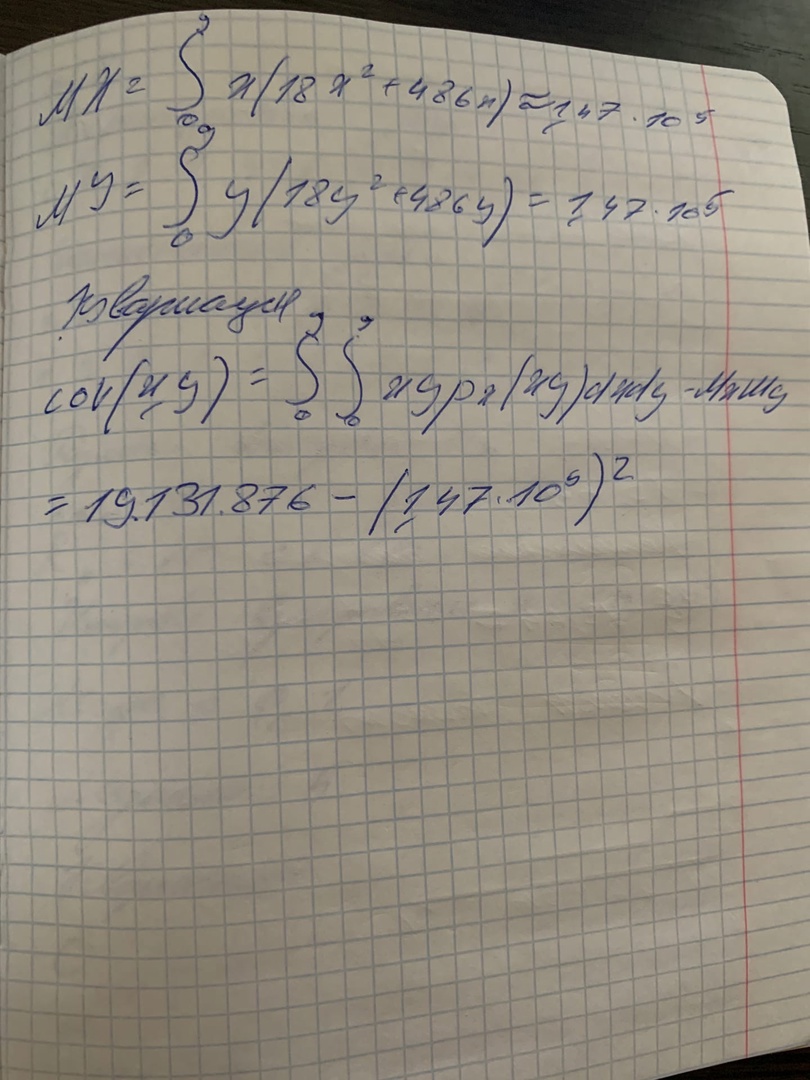 MX = ∫₀⁹ x(18x² + 486x) ≈ 1,47 · 10⁵
MY = ∫₀⁹ y(18y² + 486y) = 1,47 · 10⁵
Ковариация
cov(x,y) = ∫₀⁹ ∫₀⁹ xy pₓ(xy)dxdy - MxMy
= 19.131.876 - (1,47 · 10⁵)²